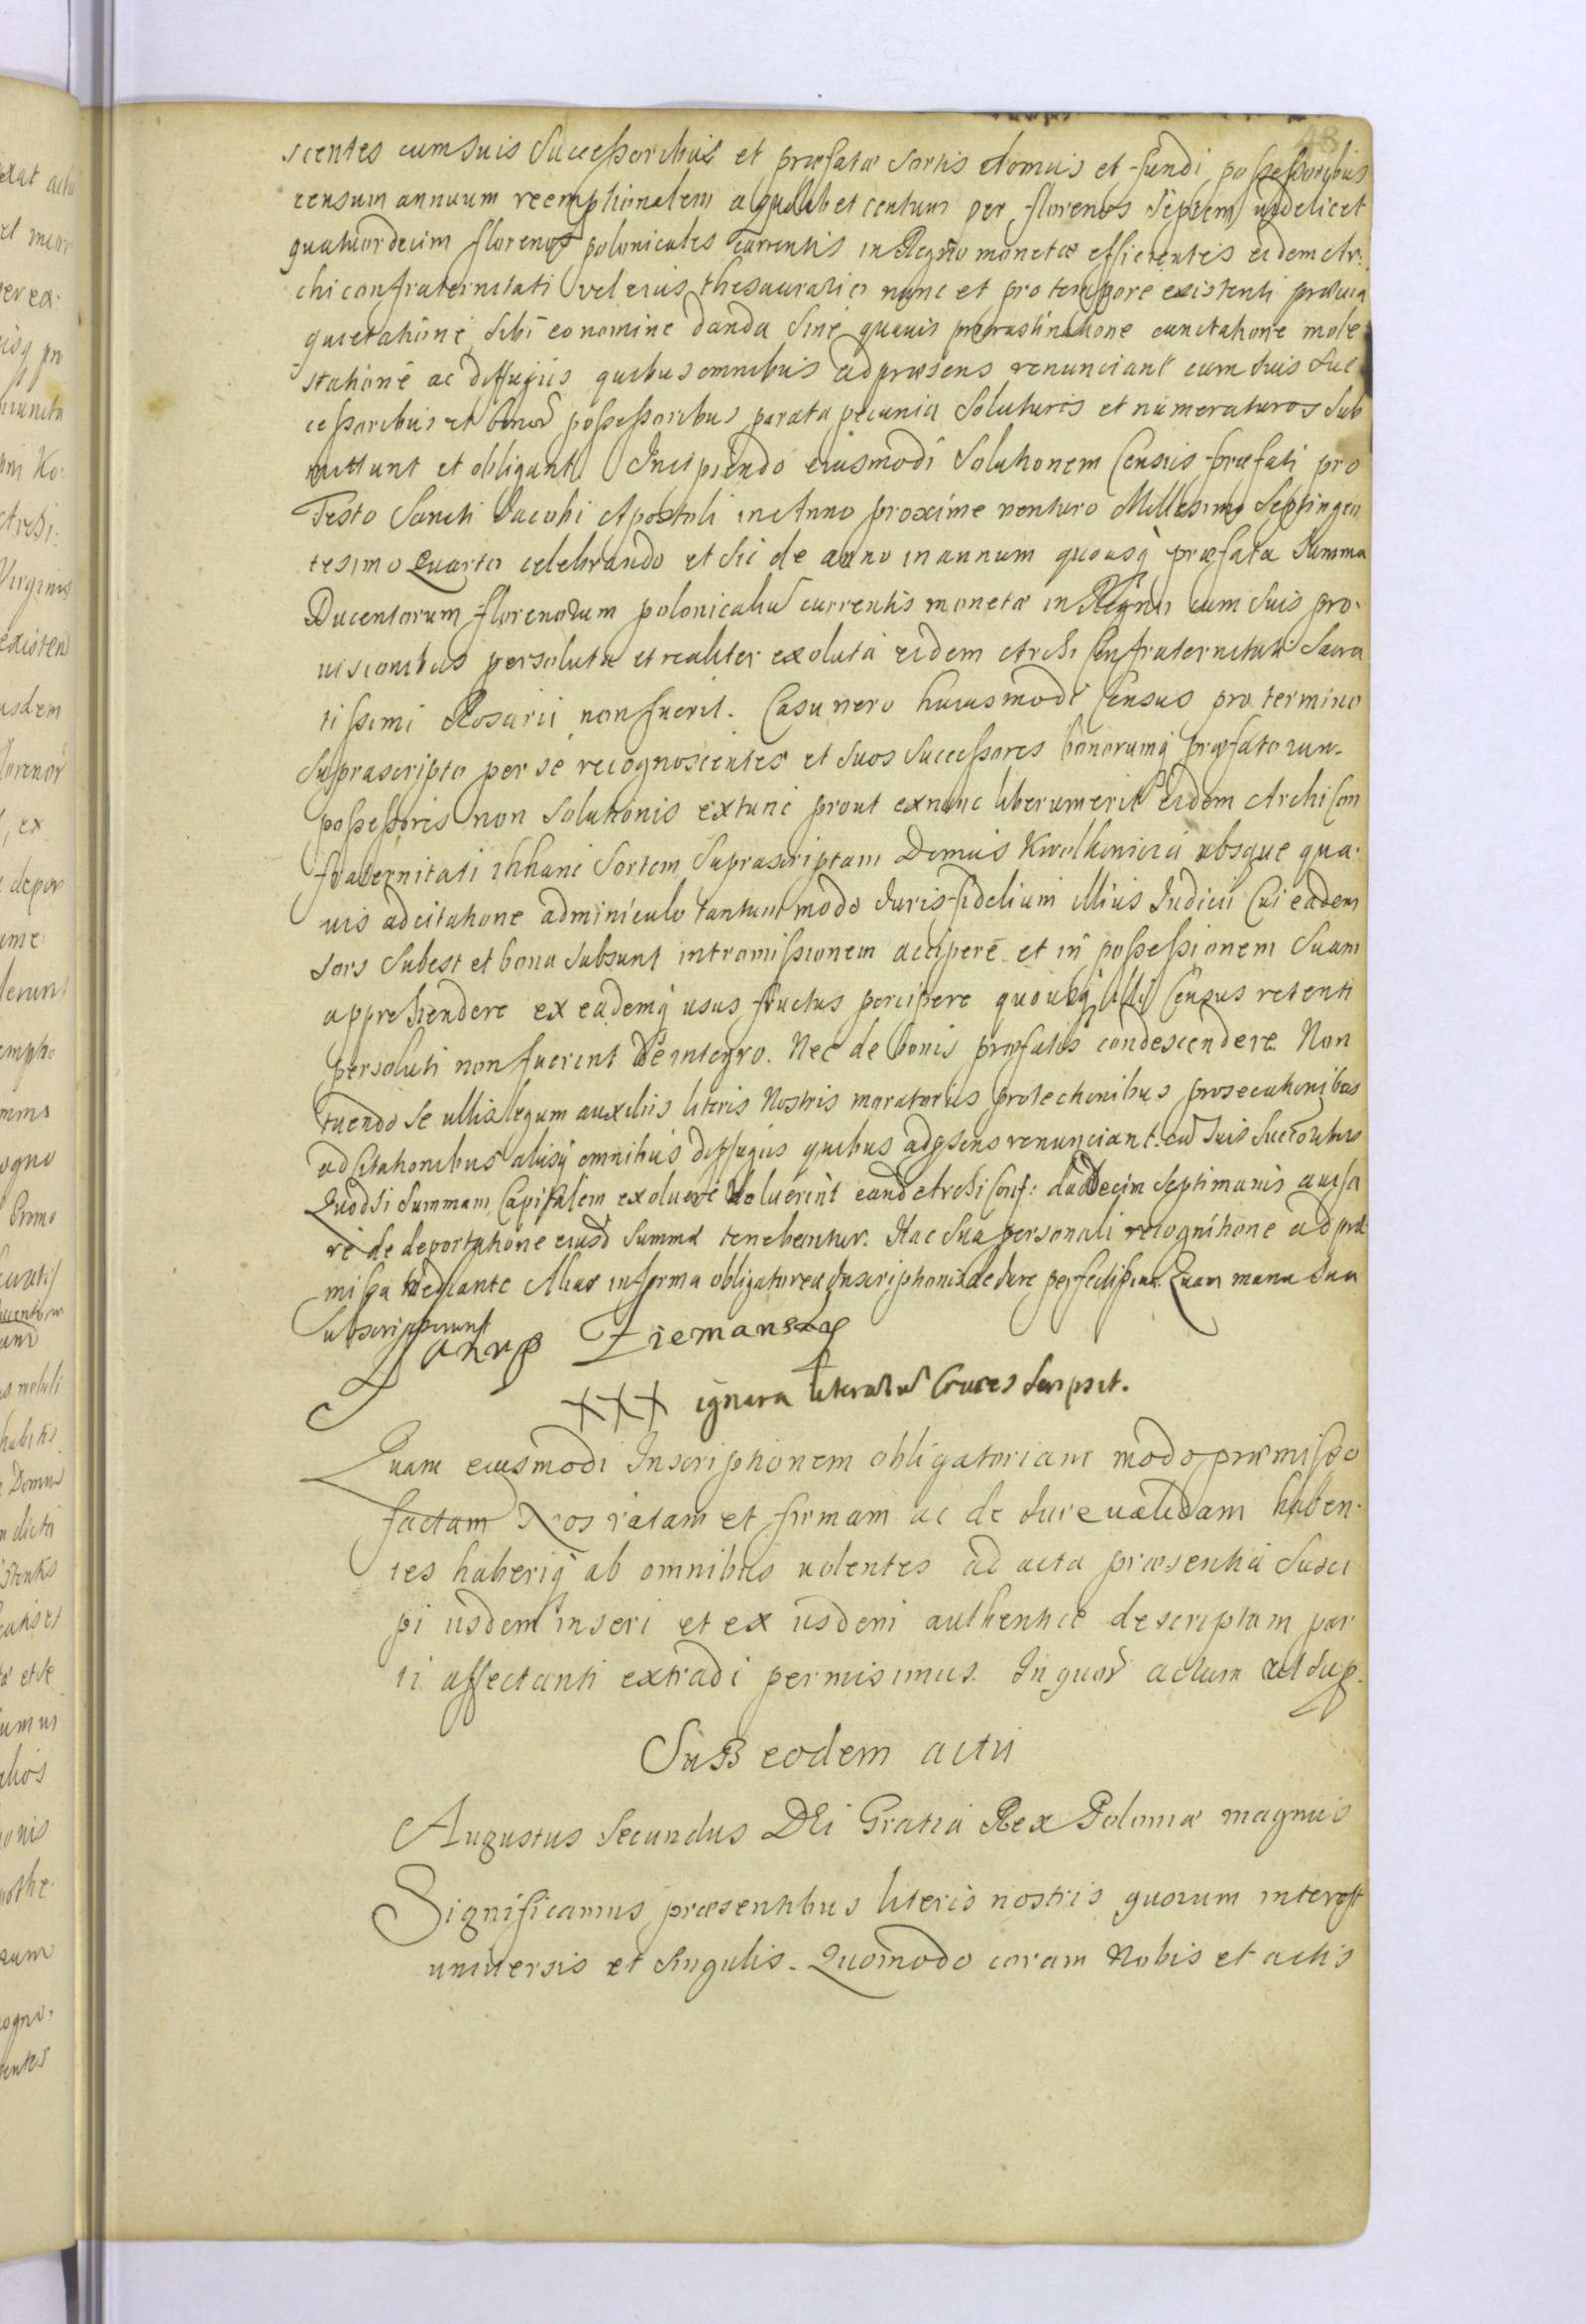 48
scentes cum suis Successoribus et præfatæ sortis domus et fundi possessoribus
censum annuum reemptionalem a quolibet centum per florenos septem videlicet
quatuordecim florenos polonicales currentis in Regno monetæ efficientes eidem Ar:
chiconfraternitati vel eius thesaurario nunc et pro tempore existenti prævia
quietatione sibi eo nomine danda sine quavis procrastinatione cunctatione mole
statione ac diffugiis quibus omnibus ad præsens renunciant cum suis suc
cessoribus et bonor possessoribus parata pecunia soluturos et numeraturos sub
mittunt et obligant. Incipiendo eiusmodi solutionem Census præfati pro
Festo Sancti Jacobi Apostoli in Anno proxime venturo Millesimo Septingen
tesimo Quarto celebrando et sic de anno in annum quousq præfata Summa
Ducentorum florenorum polonicaliu currentis monetæ in Regno cum suis pro-
visionibus persoluta et realiter exoluta eidem Archi Confraternitati Sacra
tissimi Rosarii non fuerit. Casu vero huiusmodi Census pro termino
suprascripto per se recognoscentes et suos successores bonorumq præfatorum
possessores non solutionis extunc prout exnunc liberum erit eidem Archicon
fraternitati illhanc sortem suprascriptam Domus absque qua
vis adcitatione adminiculo tantummodo Juris fidelium illius Judicii Cui eadem
sors subest et bona subsunt intromissionem accipere et in possessionem suam
apprehendere ex eademq usus fructus percipere quousq illi Census retenti
persoluti non fuerint de integro. Nec de bonis præfatis condescendere. Non
tuendo se ullis legum auxiliis literis Nostris moratoriis protectionibus prosecutionibus
adcitationibus aliisq omnibus diffugiis quibus ad psens renunciant cu suis
Quodsi Summam Capitalem exoluere voluerint eand Archiconf: duodecim septimanis avisa
re de deportatione eiusd Summæ tenebuntur. Hac sua personali recognitione ad præ
missa mediante Alias in forma obligatorea Inscriptionis de Jure Quam manu sua
subscripserunt
Ziemansky
XXX ignara literaru Cruces scripsit.
Quam eiusmodi Inscriptionem obligatoriam modo præmisso
factam Nos ratam et firmam ac de Jure validam haben-
tes haberiq ab omnibus volentes ad acta præsentia susci
pi iisdem inseri et ex iisdem authentice descriptam par
ti affectanti extradi permisimus. In quor actum ut sup.
Sub eodem actu
Augustus Secundus DEi Gratia Rex Poloniæ magnus
Significamus præsentibus literis nostris quorum interest
universis et singulis. Quomodo coram Nobis et actis